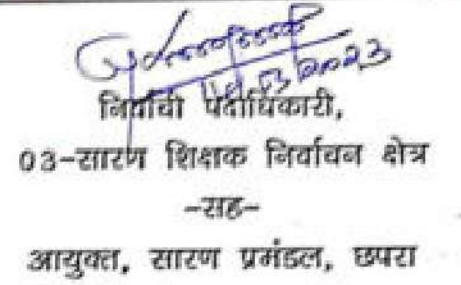 निर्वाची पदाधिकारी,
03-सारण शिक्षक निर्वाचन क्षेत्र
-सह-
आयुक्त, सारण प्रमंडल, छपरा